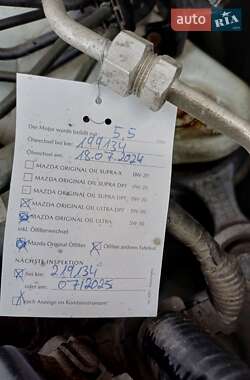 AUTO RIA .com
Der Motor wurde befüllt mit 5.5
Ölwechsel bei km: 199134
Ölwechsel am: 18.07.2024
MAZDA ORIGINAL OIL SUPRA-X 0W-20
MAZDA ORIGINAL OIL SUPRA 0W-20
MAZDA ORIGINAL OIL SUPRA DPF 0W-30
MAZDA ORIGINAL OIL ULTRA DPF 5W-30
MAZDA ORIGINAL OIL ULTRA 5W-30
inkl. Ölfilterwechsel
Mazda Original Ölfilter
Ölfilter anderes Fabrikat
NÄCHSTE INSPEKTION
bei km: 219134
oder am: 07/2025
nach Anzeige im Kombiinstrument